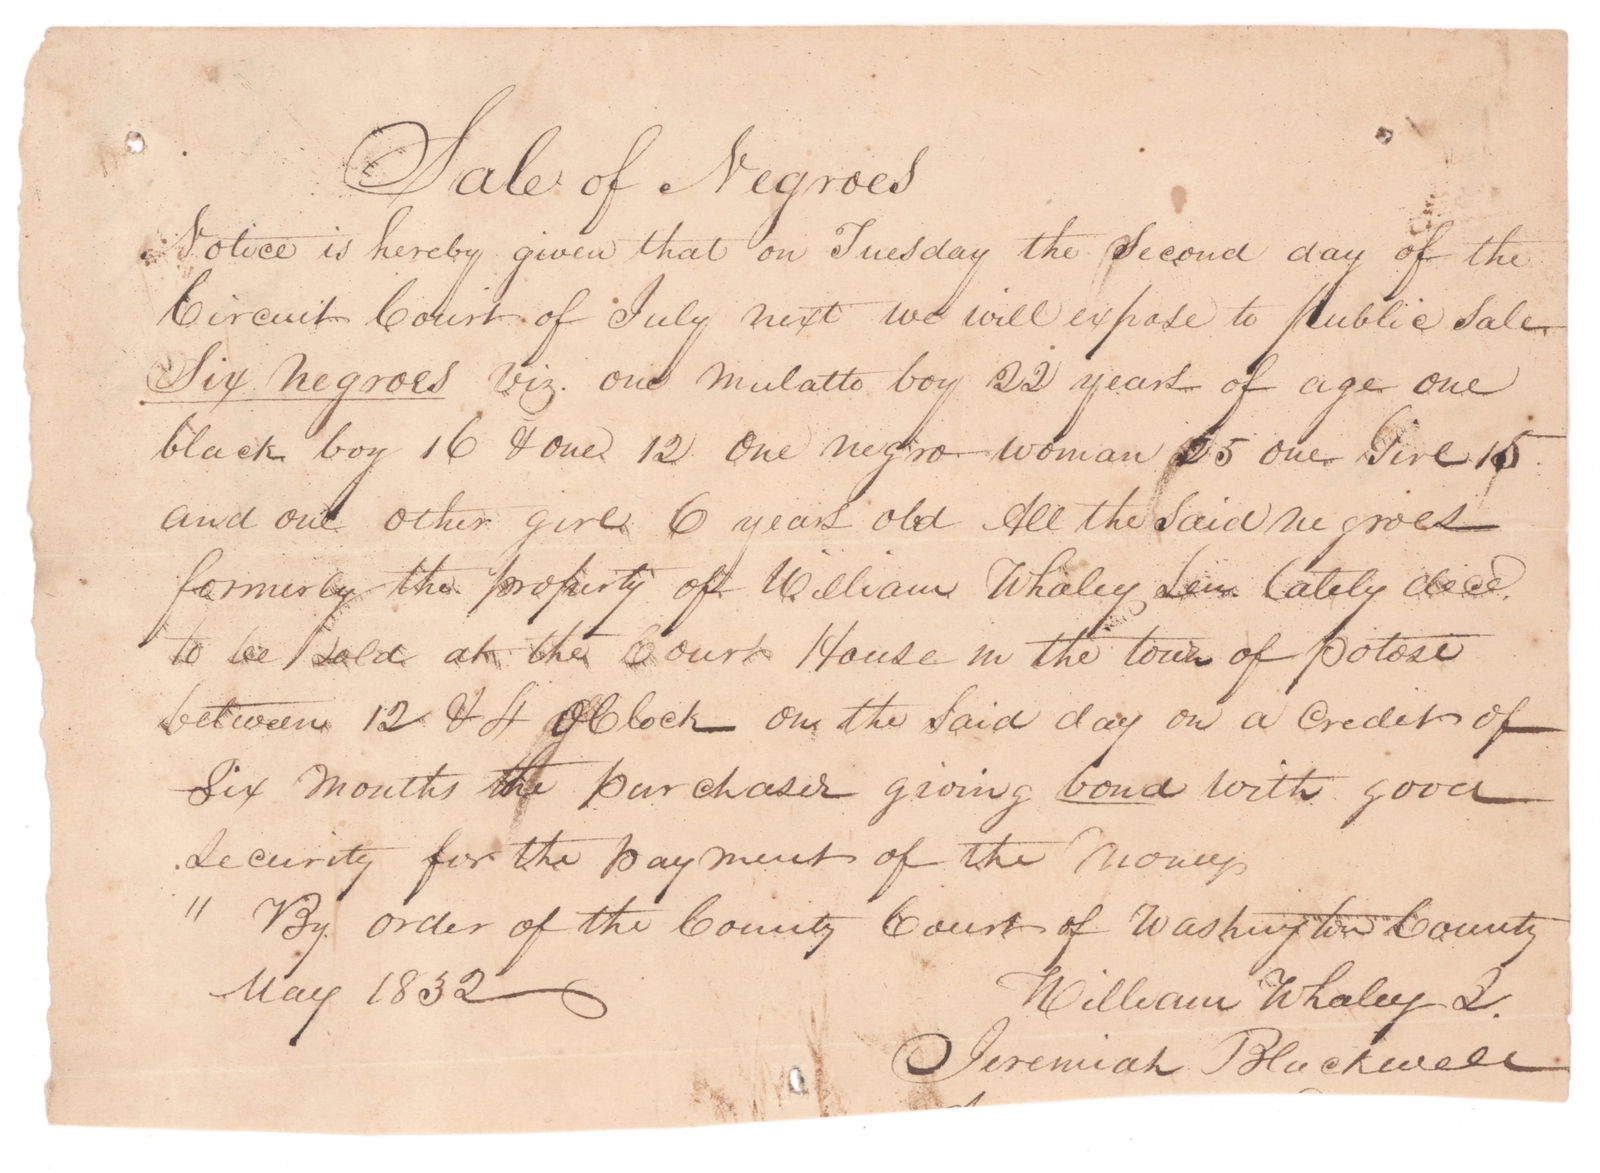 Sale of Negroes
Notice is hereby given that on Tuesday the Second day of the
Circuit Court of July next we will expose to public Sale
Six negroes viz. one mulatto boy 22 years of age one
black boy 16 & one 12 one negro woman 25 one Girl 15
and one other girl 6 years old All the Said negroes
formerly the property of William Whaley Sen. lately decd.
to be Sold at the Court House in the town of potosi
between 12 & 4 OClock on the Said day on a Credit of
Six months the purchaser giving bond with good
Security for the payment of the Money
" By order of the County Court of Washington County
May 1832
William Whaley
Jeremiah Blackwell